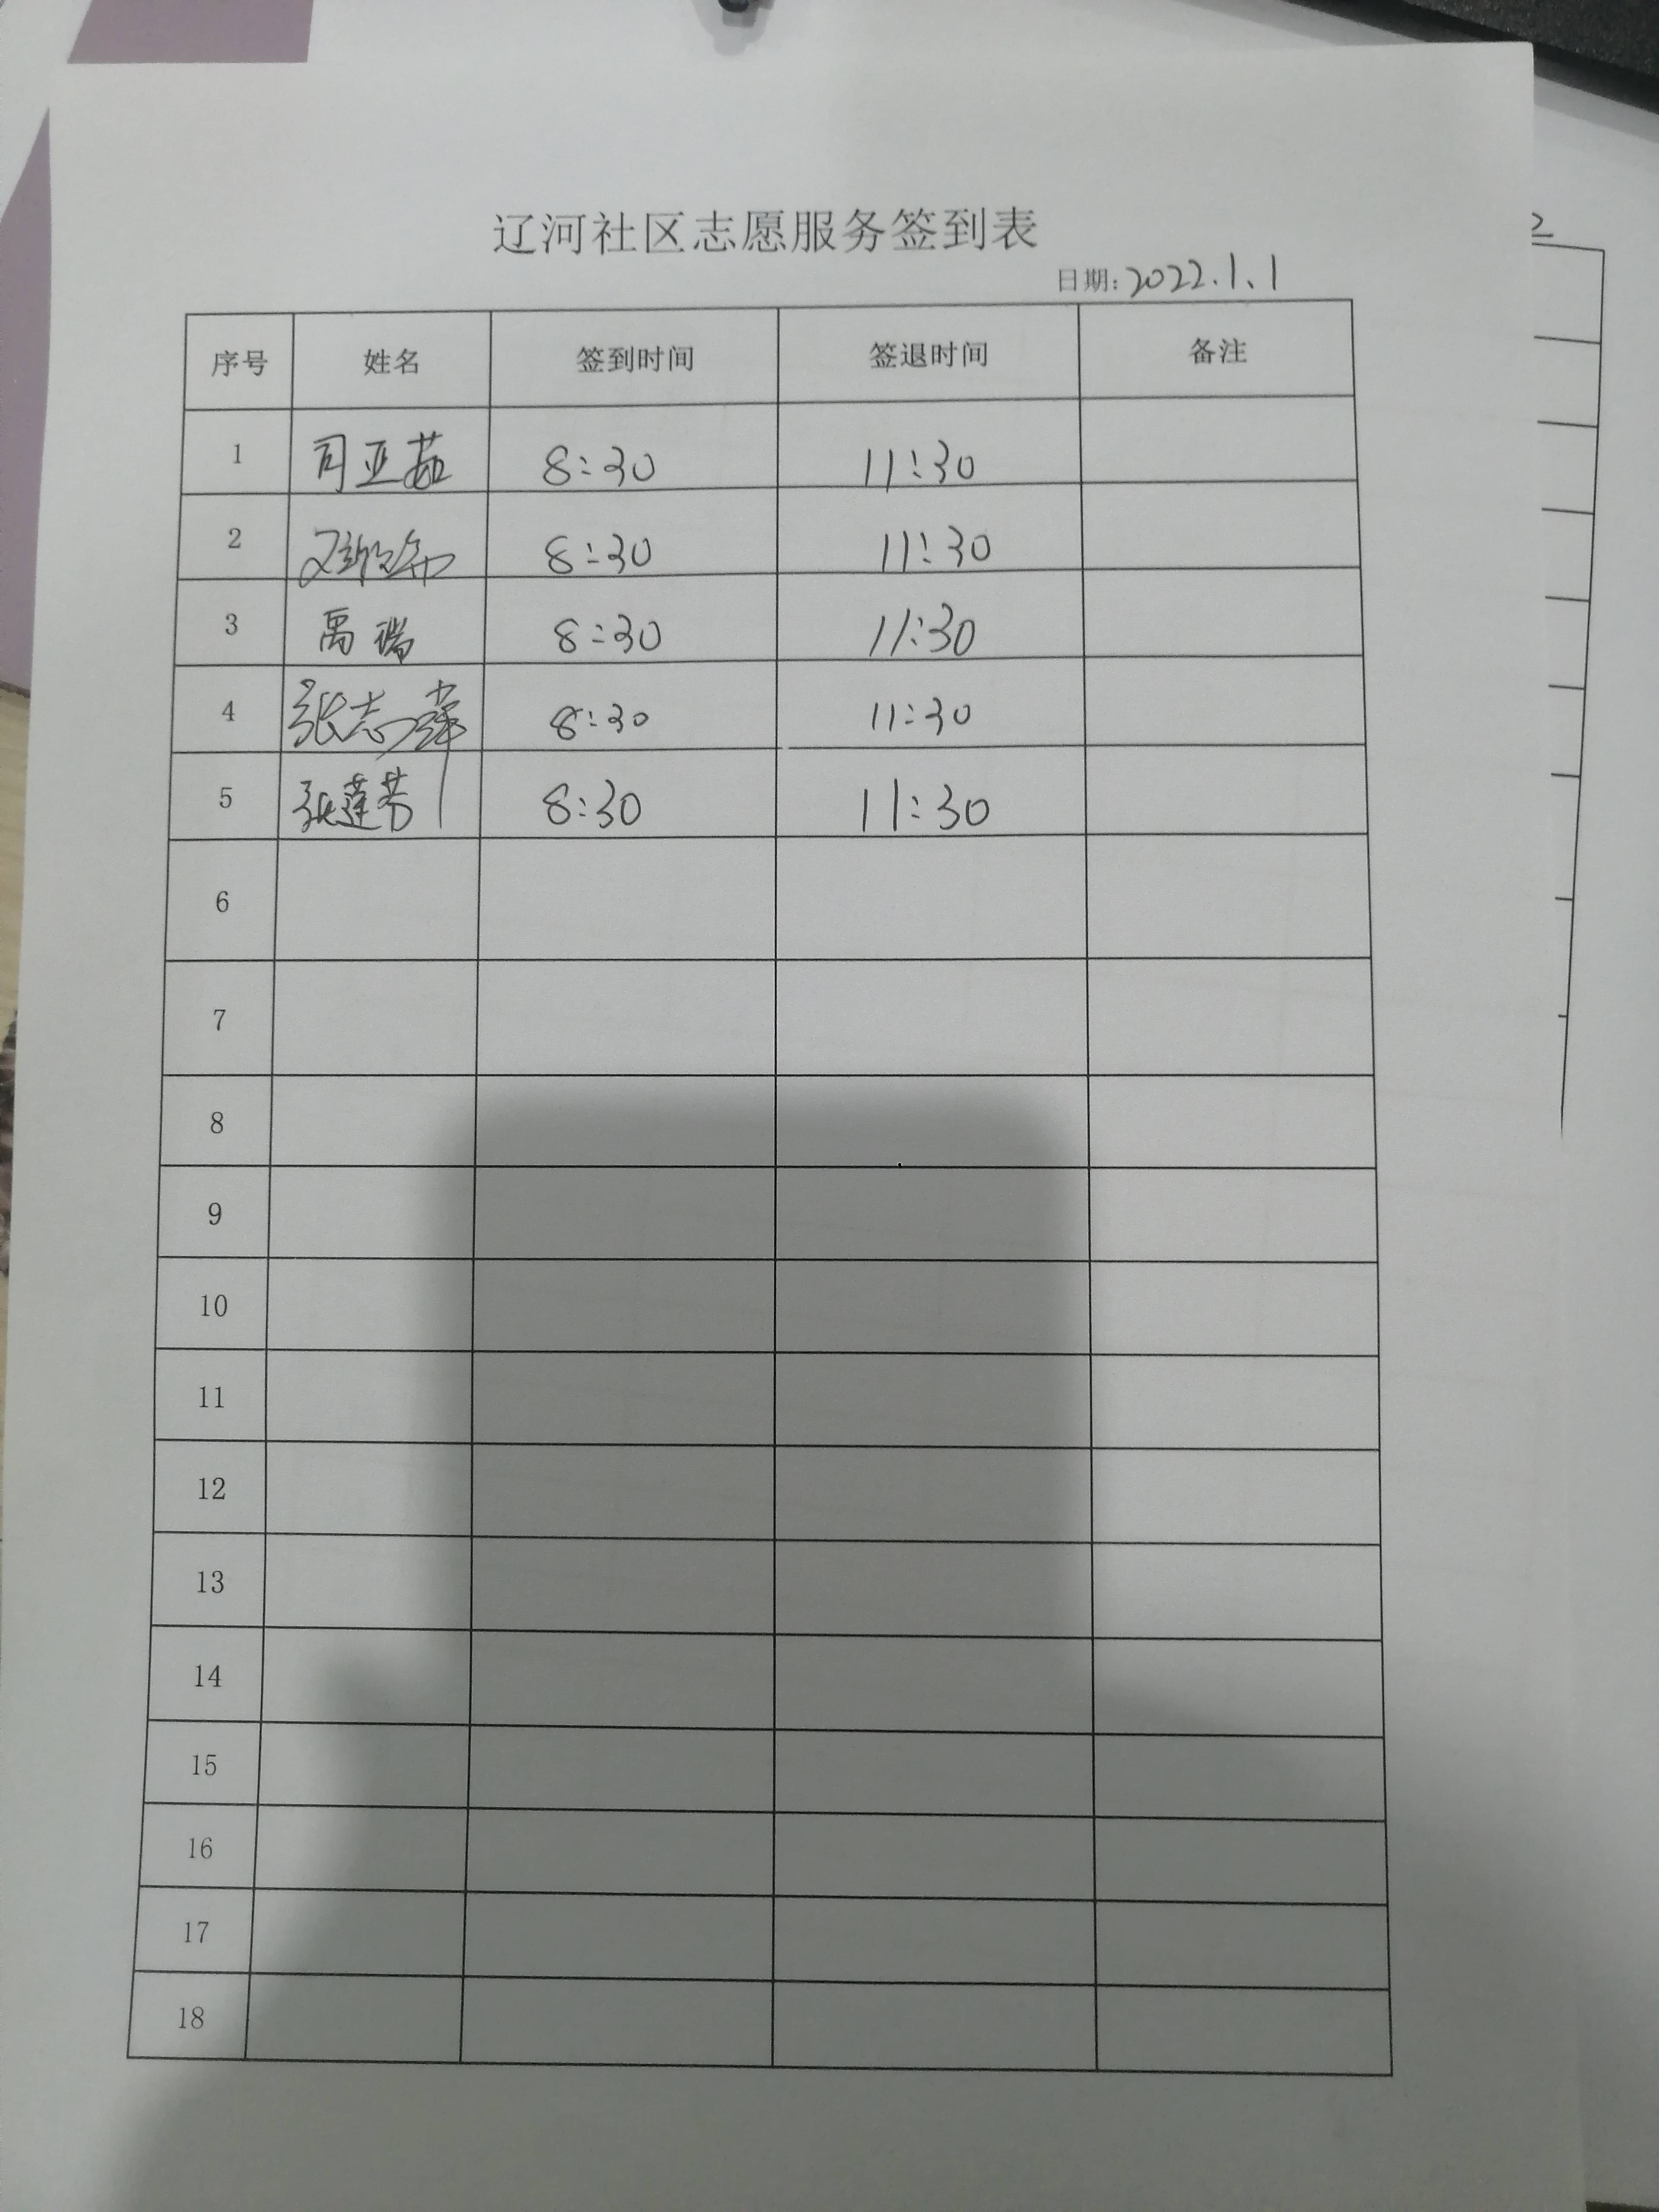 辽河社区志愿服务签到表
日期:2022.1.1
序号 姓名 签到时间 签退时间 备注
1 司亚茹 8:30 11:30
2 8:30 11:30
3 禹瑞 8:30 11:30
4 张志萍 8:30 11:30
5 张莲芳 8:30 11:30
6
7
8
9
10
11
12
13
14
15
16
17
18